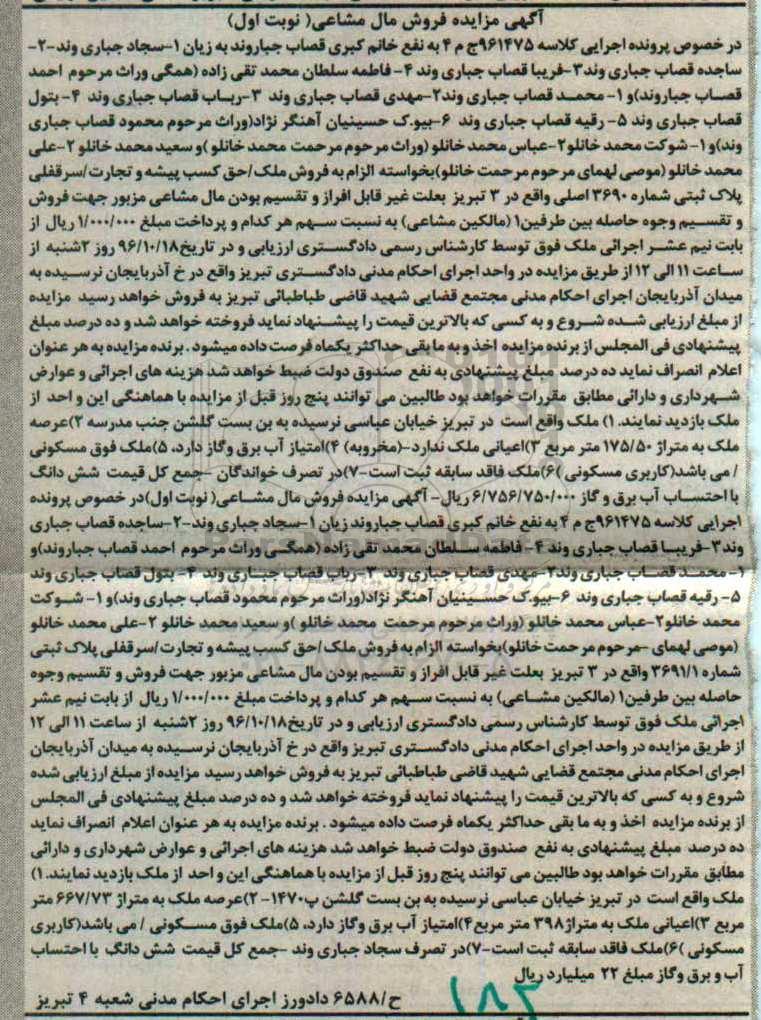 آگهی مزایده فروش مال مشاعی( نوبت اول)
در خصوص پرونده اجرایی کلاسه ۹۶۱۴۷۵ج م ۴ به نفع خانم کبری قصاب جباروند به زیان ۱-سجاد جباری وند-۲-
ساجده قصاب جباری وند۳-فریبا قصاب جباری وند ۴- فاطمه سلطان محمد تقی زاده (همگی وراث مرحوم احمد
قصاب جباروند)و ۱- محمد قصاب جباری وند۲-مهدی قصاب جباری وند ۳-رباب قصاب جباری وند ۴- بتول
قصاب جباری وند ۵- رقیه قصاب جباری وند ۶-بیوک حسینیان آهنگر نژاد(وراث مرحوم محمود قصاب جباری
وند)و ۱- شوکت محمد خانلو۲-عباس محمد خانلو (وراث مرحوم مرحمت محمد خانلو )و سعید محمد خانلو ۲-علی
محمد خانلو (موصی لهمای مرحوم مرحمت خانلو)بخواسته الزام به فروش ملک /حق کسب پیشه و تجارت/سرقفلی
پلاک ثبتی شماره ۳۶۹۰ اصلی واقع در ۳ تبریز بعلت غیر قابل افراز و تقسیم بودن مال مشاعی مزبور جهت فروش
و تقسیم وجوه حاصله بین طرفین۱ (مالکین مشاعی) به نسبت سهم هر کدام و پرداخت مبلغ ۱/۰۰۰/۰۰۰ ریال از
بابت نیم عشر اجرائی ملک فوق توسط کارشناس رسمی دادگستری ارزیابی و در تاریخ۹۶/۱۰/۱۸ روز ۲شنبه از
ساعت ۱۱ الی ۱۲ از طریق مزایده در واحد اجرای احکام مدنی دادگستری تبریز واقع در خ آذربایجان نرسیده به
میدان آذربایجان اجرای احکام مدنی مجتمع قضایی شهید قاضی طباطبائی تبریز به فروش خواهد رسید مزایده
از مبلغ ارزیابی شده شروع و به کسی که بالاترین قیمت را پیشنهاد نماید فروخته خواهد شد و ده درصد مبلغ
پیشنهادی فی المجلس از برنده مزایده اخذ و به ما بقی حداکثر یکماه فرصت داده میشود . برنده مزایده به هر عنوان
اعلام انصراف نماید ده درصد مبلغ پیشنهادی به نفع صندوق دولت ضبط خواهد شد هزینه های اجرائی و عوارض
شهرداری و دارائی مطابق مقررات خواهد بود طالبین می توانند پنج روز قبل از مزایده با هماهنگی این و احد از
ملک بازدید نمایند. ۱) ملک واقع است در تبریز خیابان عباسی نرسیده به بن بست گلشن جنب مدرسه ۲)عرصه
ملک به متراژ ۱۷۵/۵۰ متر مربع ۳)اعیانی ملک ندارد-(مخروبه) ۴)امتیاز آب برق وگاز دارد، ۵)ملک فوق مسکونی
/ می باشد(کاربری مسکونی )۶)ملک فاقد سابقه ثبت است-۷)در تصرف خواندگان -جمع کل قیمت شش دانگ
با احتساب آب برق و گاز ۶/۷۵۶/۷۵۰/۰۰۰ ریال- آگهی مزایده فروش مال مشاعی( نوبت اول)در خصوص پرونده
اجرایی کلاسه ۹۶۱۴۷۵ج م ۴ به نفع خانم کبری قصاب جباروند زیان ۱-سجاد جباری وند-۲-ساجده قصاب جباری
وند۳-فریبا قصاب جباری وند ۴- فاطمه سلطان محمد تقی زاده (همگی وراث مرحوم احمد قصاب جباروند)و
۱- محمد قصاب جباری وند۲-مهدی قصاب جباری وند ۳-رباب قصاب جباری وند ۴- بتول قصاب جباری وند
۵- رقیه قصاب جباری وند ۶-بیوک حسینیان آهنگر نژاد(وراث مرحوم محمود قصاب جباری وند)و ۱- شوکت
محمد خانلو۲-عباس محمد خانلو (وراث مرحوم مرحمت محمد خانلو )و سعید محمد خانلو ۲-علی محمد خانلو
(موصی لهمای -مرحوم مرحمت خانلو)بخواسته الزام به فروش ملک /حق کسب پیشه و تجارت/سرقفلی پلاک ثبتی
شماره ۳۶۹۱/۱ واقع در ۳ تبریز بعلت غیر قابل افراز و تقسیم بودن مال مشاعی مزبور جهت فروش و تقسیم وجوه
حاصله بین طرفین۱ (مالکین مشاعی) به نسبت سهم هر کدام و پرداخت مبلغ ۱/۰۰۰/۰۰۰ ریال از بابت نیم عشر
اجرائی ملک فوق توسط کارشناس رسمی دادگستری ارزیابی و در تاریخ۹۶/۱۰/۱۸ روز ۲شنبه از ساعت ۱۱ الی ۱۲
از طریق مزایده در واحد اجرای احکام مدنی دادگستری تبریز واقع در خ آذربایجان نرسیده به میدان آذربایجان
اجرای احکام مدنی مجتمع قضایی شهید قاضی طباطبائی تبریز به فروش خواهد رسید مزایده از مبلغ ارزیابی شده
شروع و به کسی که بالاترین قیمت را پیشنهاد نماید فروخته خواهد شد و ده درصد مبلغ پیشنهادی فی المجلس
از برنده مزایده اخذ و به ما بقی حداکثر یکماه فرصت داده میشود . برنده مزایده به هر عنوان اعلام انصراف نماید
ده درصد مبلغ پیشنهادی به نفع صندوق دولت ضبط خواهد شد هزینه های اجرائی و عوارض شهرداری و دارائی
مطابق مقررات خواهد بود طالبین می توانند پنج روز قبل از مزایده با هماهنگی این و احد از ملک بازدید نمایند. ۱)
ملک واقع است در تبریز خیابان عباسی نرسیده به بن بست گلشن پ۱۴۷۰- ۲)عرصه ملک به متراژ ۶۶۷/۷۳ متر
مربع ۳)اعیانی ملک به متراژ۳۹۸ متر مربع۴)امتیاز آب برق وگاز دارد، ۵)ملک فوق مسکونی / می باشد(کاربری
مسکونی )۶)ملک فاقد سابقه ثبت است-۷)در تصرف سجاد جباری وند -جمع کل قیمت شش دانگ با احتساب
آب و برق وگاز مبلغ ۲۲ میلیارد ریال
ح/۶۵۸۸ دادورز اجرای احکام مدنی شعبه ۴ تبریز
۱۸۲